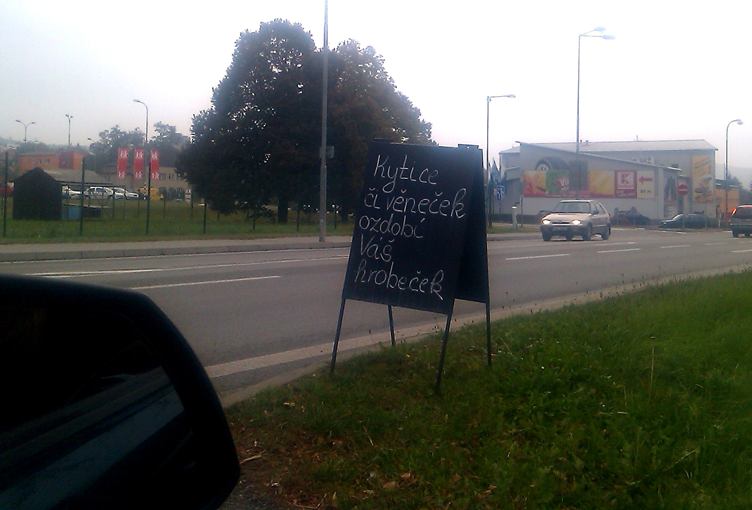 Kytice
či věneček
ozdobí
Váš
hrobeček